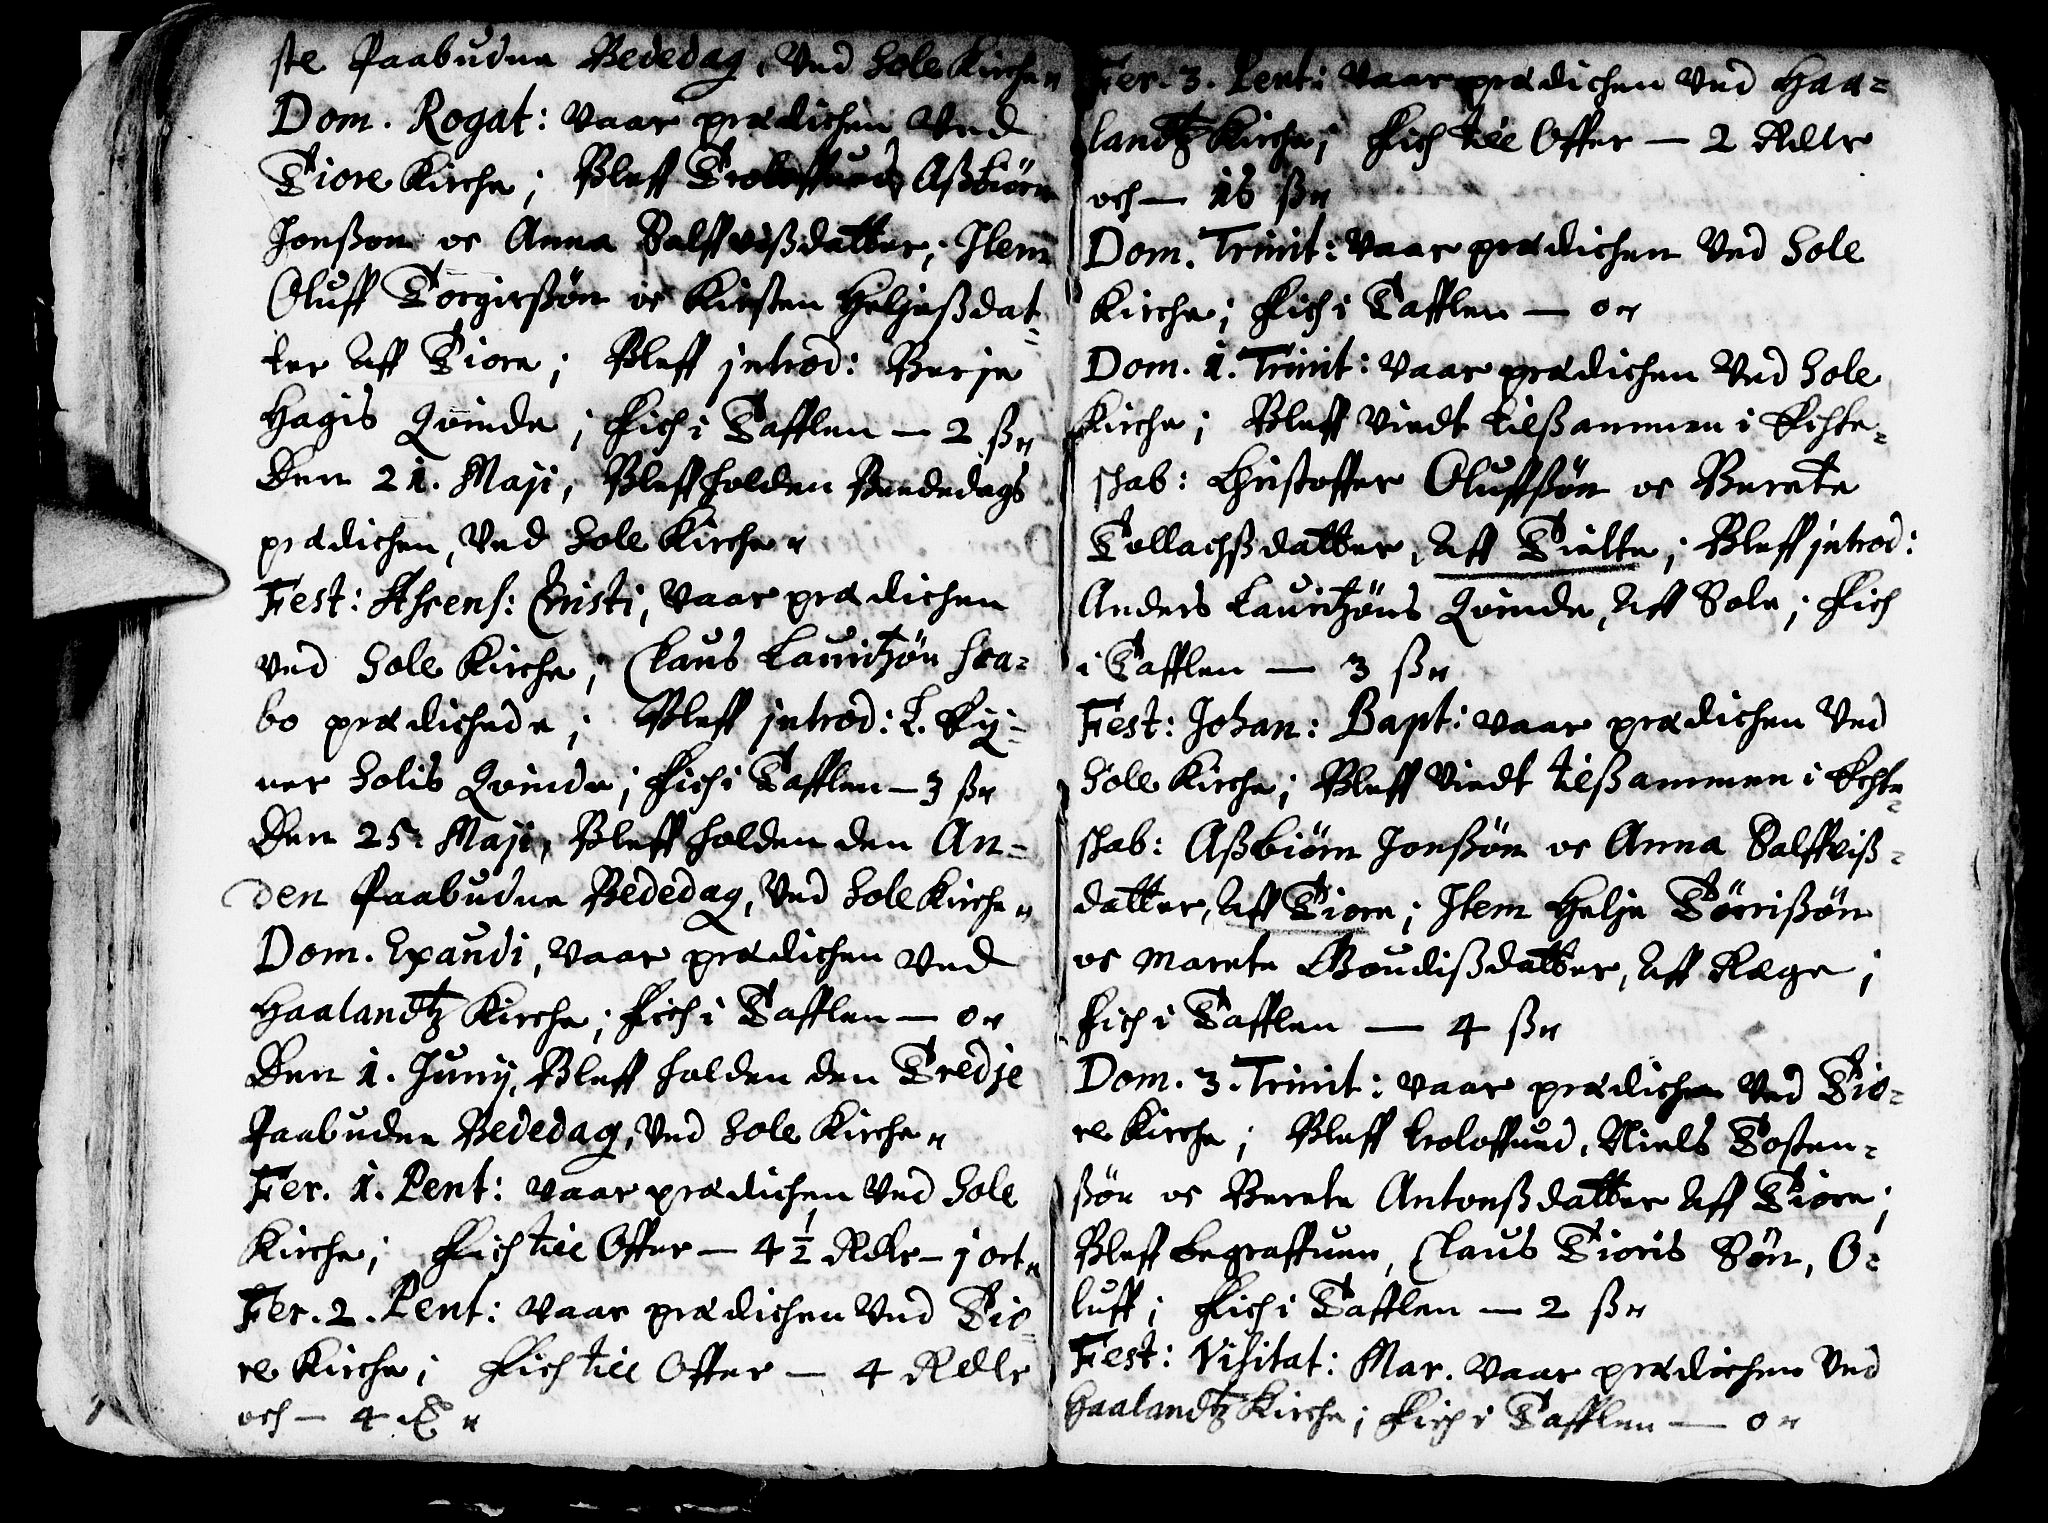 ste Paabudne Bededag, Ved Sole Kirche„
Dom. Rogat: Vaar prædichen Ved
Tiore Kirche; Bleff Troloffued, Aßbiørn
Jonßøn oc Anna Salffvißdatter, Item
Oluff Torgierßøn oc Kirsten Heljeßdat-
ter Aff Tiore; Bleff introd: Berje
Hagis Qvinde; Fich i Tafflen — 2 ß„
Den 21. Maji, Bleff holden Beededags
prædichen, Ved Sole Kirche„
Fest: Ascens: Christi, Vaar prædichen
Ved Sole Kirche; Claus Lauritzøn Sca-
bo prædichede; Bleff introd: L. Ey-
ner Solis Qvinde; Fich i Tafflen — 3 ß„
Den 25. Maji, Bleff holden den An-
den Paabudne Bededag, Ved Sole Kirche„
Dom. Exaudi, Vaar prædichen Ved
Haalandtz Kirche; Fich i Tafflen — 0„
Den 1. Junij, Bleff holden den Tredje
Paabudne Bededag, Ved Sole Kirche„
Fer. 1. Pent: Vaar prædichen Ved Sole
Kirche; Fich till Offer — 4 1/2 Rdlr — j ort„
Fer. 2. Pent: Vaar prædichen Ved Tio-
re Kirche; Fich till Offer — 4 Rdlr
och — 4 „
Fer. 3. Pent: Vaar prædichen Ved Haa-
landtz Kirche; Fich till Offer — 2 Rdlr
och — 16 ß„
Dom. Trinit: Vaar prædichen Ved Sole
Kirche; Fich i Tafflen — 0„
Dom. 1. Trinit: Vaar prædichen Ved Sole
Kirche; Bleff Viedt tilßammen i Echte-
schab: Christoffer Oluffßøn oc Berete
Tollachßdatter, Aff Tielte; Bleff introd:
Anders Lauritzøns Qvinde, Aff Sole; Fich
i Tafflen — 3 ß„
Fest: Johan: Bapt: Vaar prædichen Ved
Sole Kirche; Bleff Viedt tilßammen i Echte-
schab: Aßbiørn Jonßøn oc Anna Salffviß-
datter, Aff Tiore; Item Helje Tørrißøn
oc Marete Goudißdatter, Aff Ræge;
Fich i Tafflen — 4 ß„
Dom. 3. Trinit: Vaar prædichen Ved Tio-
re Kirche; Bleff troloffued, Niels Tosten-
ßøn oc Berete Antonßdatter Aff Tiore;
Bleff begraffuen, Claus Tioris Søn, O-
luff; Fich i Tafflen — 2 ß„
Fest: Visitat: Mar. Vaar prædichen Ved
Haalandtz Kirche; Fich i Tafflen — 0„